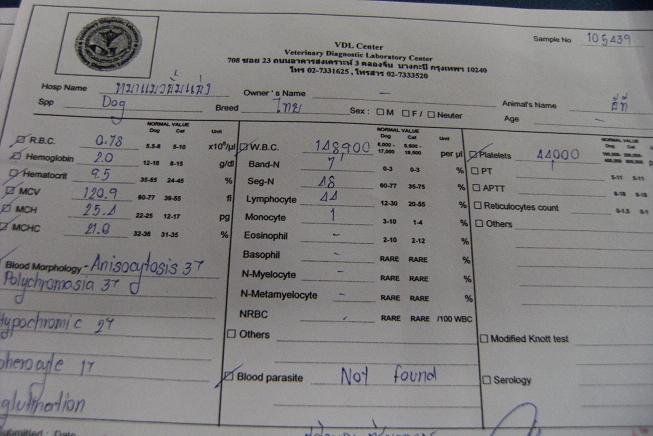 VDL Center
Veterinary Diagnostic Laboratory Center
708 ซอย 23 ถนนอาคารสงเคราะห์ 3 คลองจั่น บางกะปิ กรุงเทพฯ 10240
โทร 02-7331625, โทรสาร 02-7333520
Sample No 105439
Hosp Name
Owner's Name -
Animal's Name
Spp Dog Breed ไทย Sex : M F / Neuter Age -
NORMAL VALUE
Dog Cat Unit
R.B.C. 0.78 5.5-8 5-10 x10⁶/µl
Hemoglobin 2.0 12-18 8-15 g/dl
Hematocrit 9.5 35-55 24-45 %
MCV 120.9 60-77 39-55 fl
MCH 25.4 22-25 12-17 pg
MCHC 21.0 32-36 31-35 %
Blood Morphology - Anisocytosis 3+
Polychromasia 3+
Hypochromic 2+
pherocyte 1+
glutination
NORMAL VALUE
Dog Cat Unit
W.B.C. 148900 6,000-17,000 5,500-19,500 per µl
Band-N 7 0-3 0-3 %
Seg-N 48 60-77 35-75 %
Lymphocyte 44 12-30 20-55 %
Monocyte 1 3-10 1-4 %
Eosinophil - 2-10 2-12 %
Basophil - RARE RARE %
N-Myelocyte - RARE RARE %
N-Metamyelocyte - RARE RARE %
NRBC RARE RARE /100 WBC
Others
Blood parasite Not found
NORMAL VALUE
Dog Cat
Platelets 44000
PT 5-11 5-11
APTT
Reticulocytes count
Others
Modified Knott test
Serology